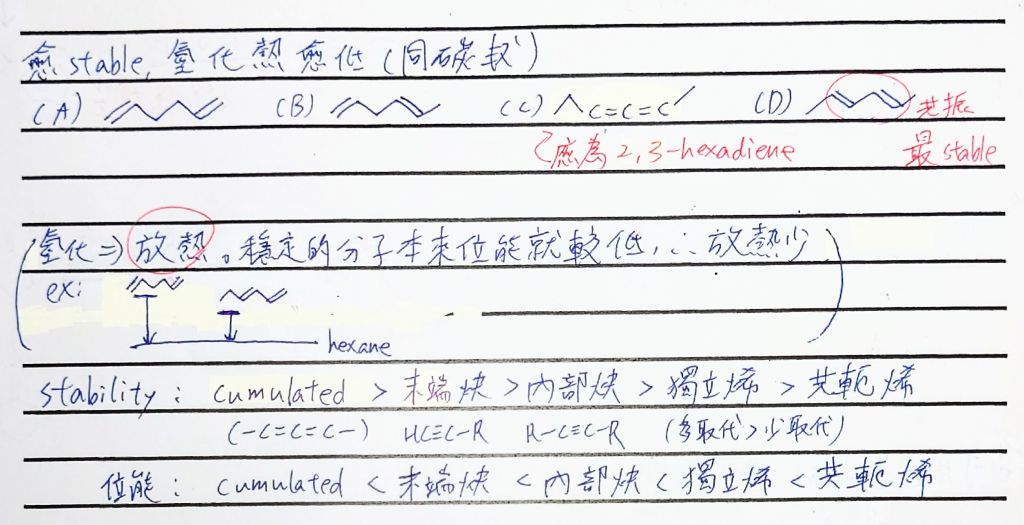 愈stable,氫化熱愈低(同碳數)
(A) (B) (C) C=C=C (D) 共振
應為2,3-hexadiene 最stable
氫化⇒放熱。穩定的分子本來位能就較低,∴放熱少
ex:
hexane
stability: cumulated > 末端炔 > 內部炔 > 獨立烯 > 共軛烯
(-C=C=C-) HC≡C-R R-C≡C-R (多取代>少取代)
位能: cumulated < 末端炔 < 內部炔 < 獨立烯 < 共軛烯